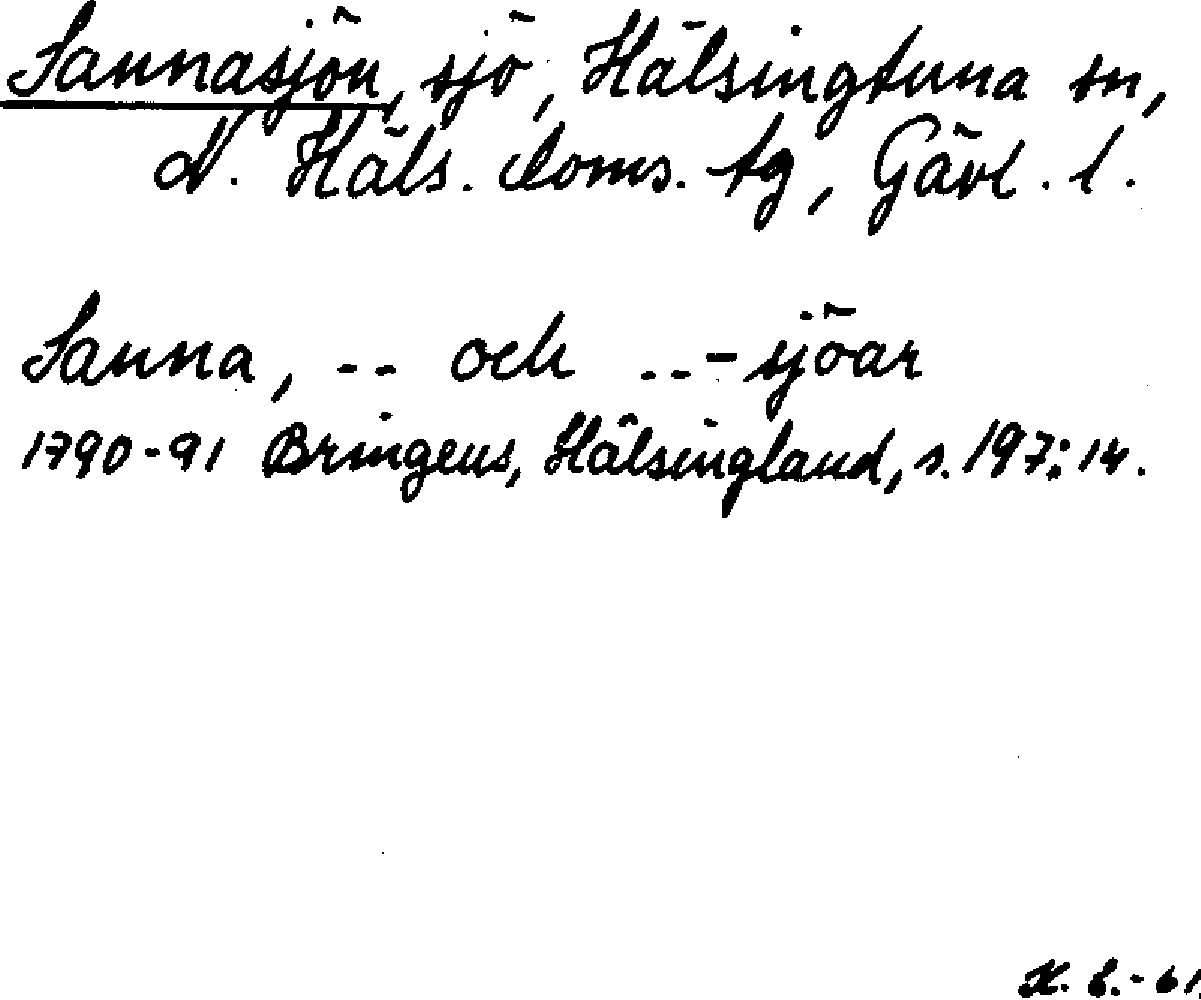 Sannasjön, sjö, Hälsingtuna sn,
N. Häls. doms. tg, Gävl. l.
Sanna, -- och ..-sjöar
1790-91 Bringeus, Hälsingland, s. 197:14.